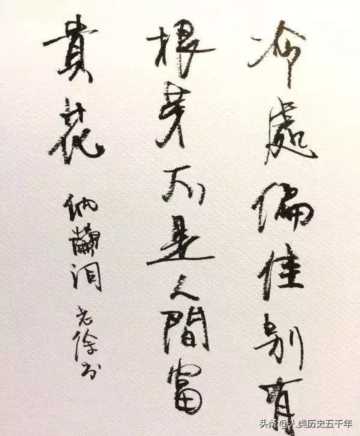 冷處偏佳别有
根芽不是人間富
貴花
纳蘭词 老徐书
头条 @人类历史五千年